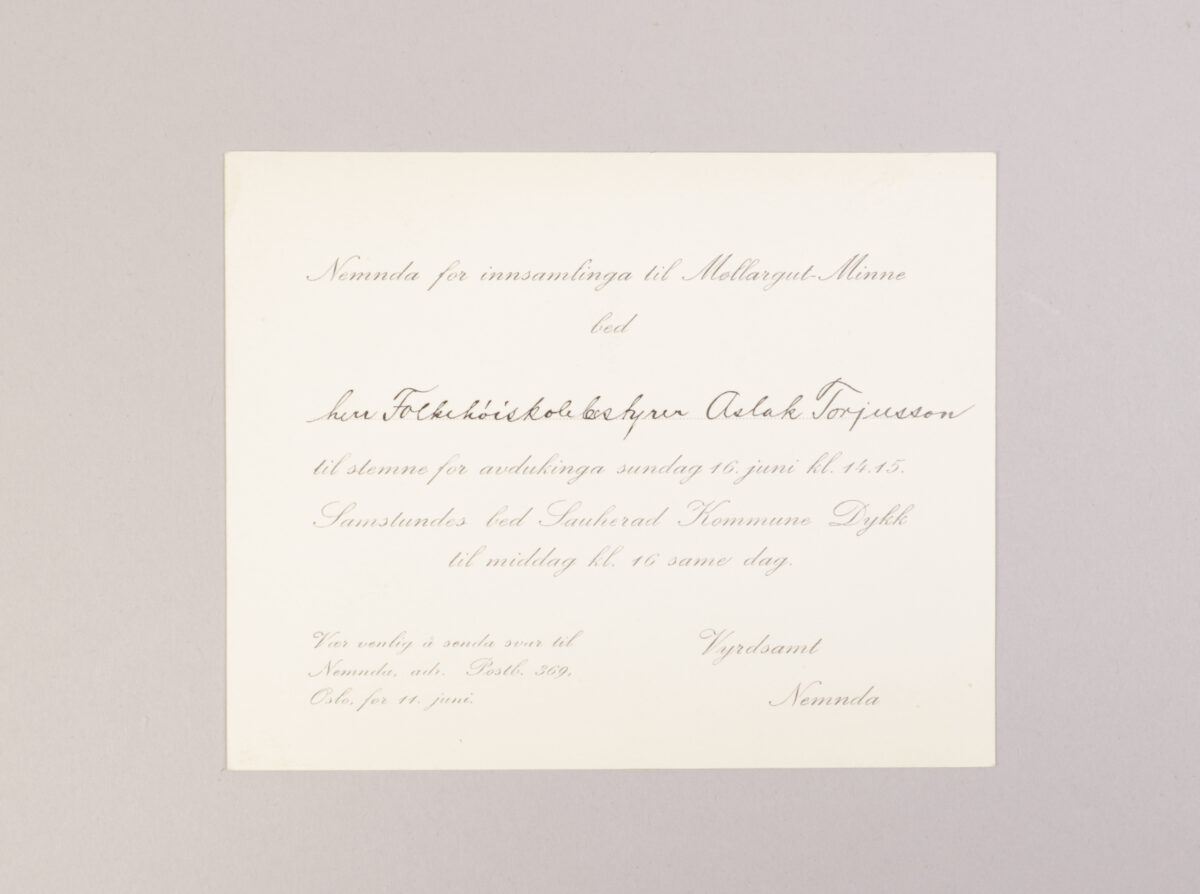 Nemnda for innsamlinga til Møllargut-Minne
bed
herr Folkehöiskolebestyrer Aslak Torjusson
til stemne for avdukinga sundag 16. juni kl. 14.15.
Samstundes bed Sauherad Kommune Dykk
til middag kl. 16 same dag.
Vær venlig å senda svar til
Nemnda, adr. Postb. 369,
Oslo, før 11. juni.
Vyrdsamt
Nemnda